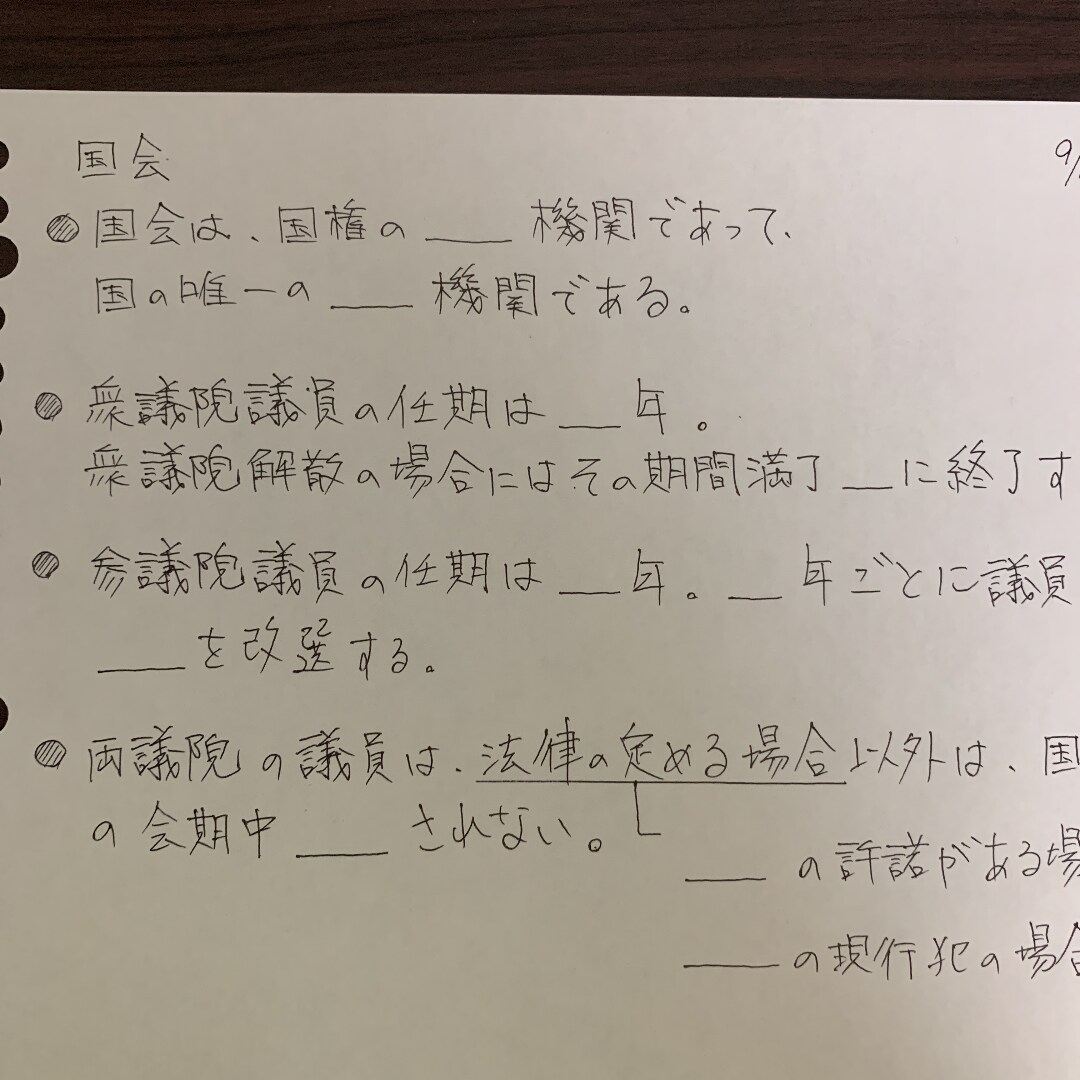 国会
9/
国会は、国権の ____ 機関であって、
国の唯一の ____ 機関である。
衆議院議員の任期は ___ 年。
衆議院解散の場合にはその期間満了 ___ に終了す
参議院議員の任期は ___ 年。 ___ 年ごとに議員
____ を改選する。
両議院の議員は、法律の定める場合以外は、国
の会期中 ____ されない。
____ の許諾がある場
____ の現行犯の場合